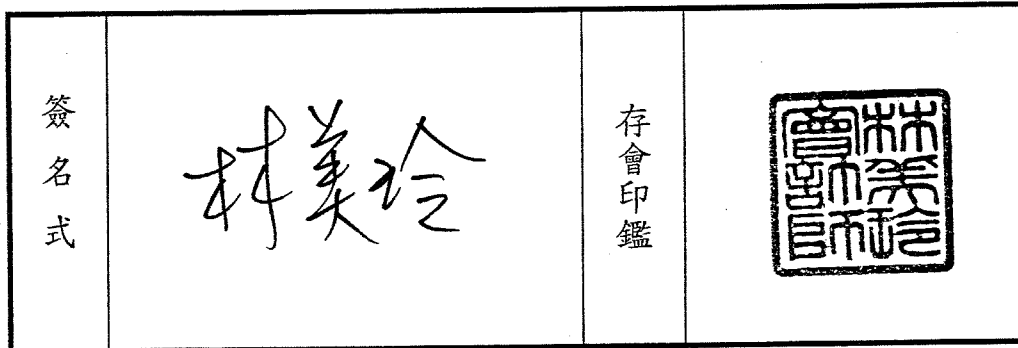 簽名式
林美玲
存會印鑑
林美玲
會計師